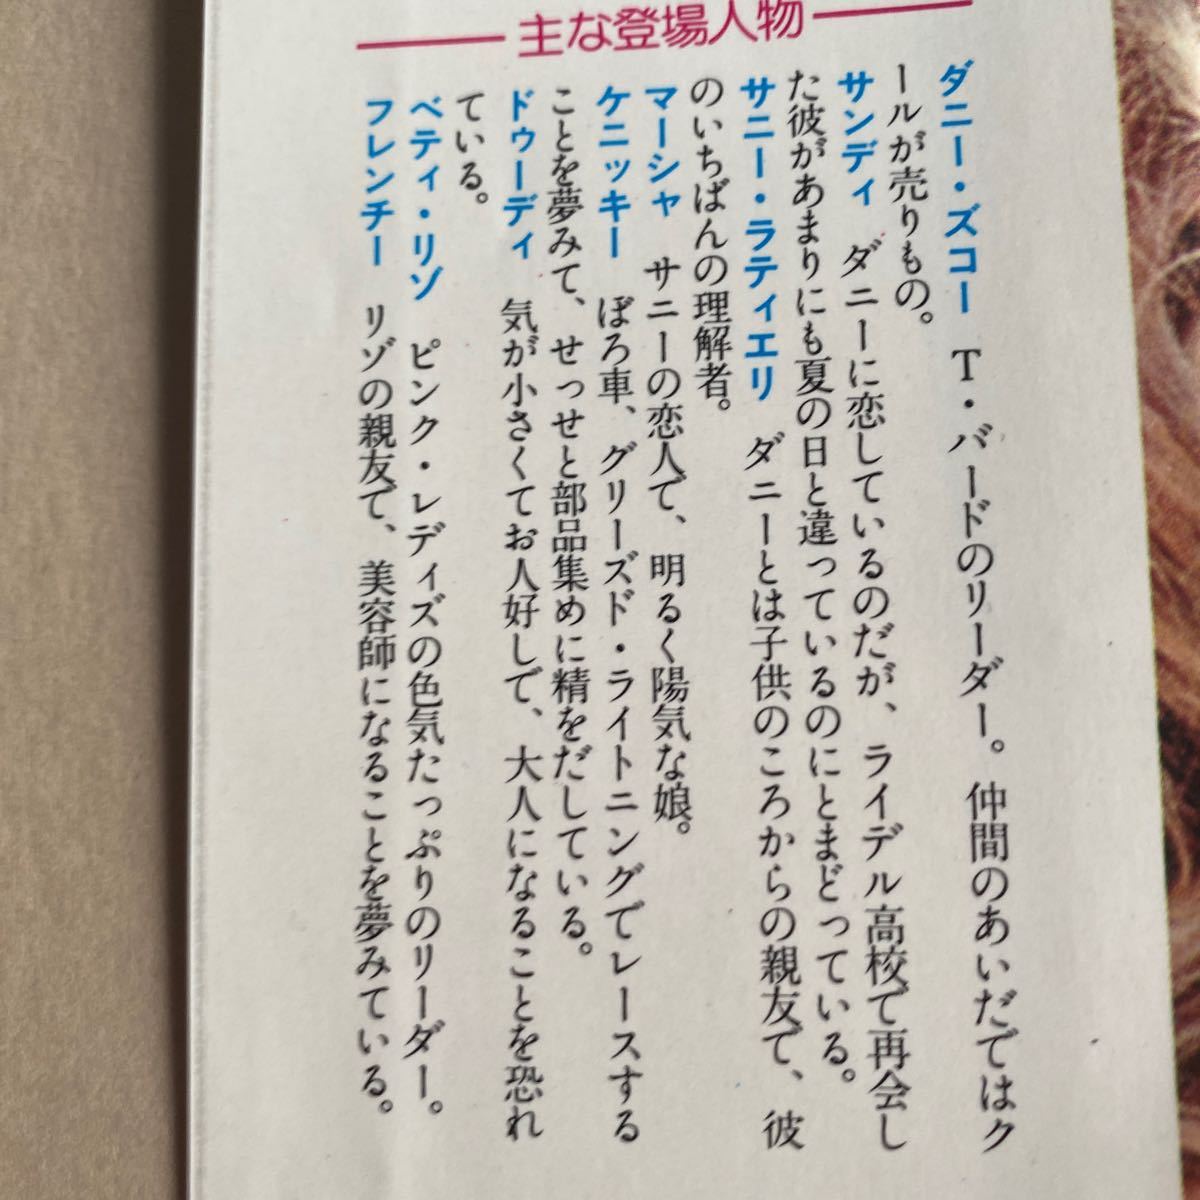 主な登場人物
ダニー・ズコー　T・バードのリーダー。仲間のあいだではク
ールが売りもの。
サンディ　ダニーに恋しているのだが、ライデル高校で再会し
た彼があまりにも夏の日と違っているのにとまどっている。
サニー・ラティエリ　ダニーとは子供のころからの親友で、彼
のいちばんの理解者。
マーシャ　サニーの恋人で、明るく陽気な娘。
ケニッキー　ぼろ車、グリーズド・ライトニングでレースする
ことを夢みて、せっせと部品集めに精をだしている。
ドゥーディ　気が小さくてお人好しで、大人になることを恐れ
ている。
ベティ・リゾ　ピンク・レディズの色気たっぷりのリーダー。
フレンチー　リゾの親友で、美容師になることを夢みている。